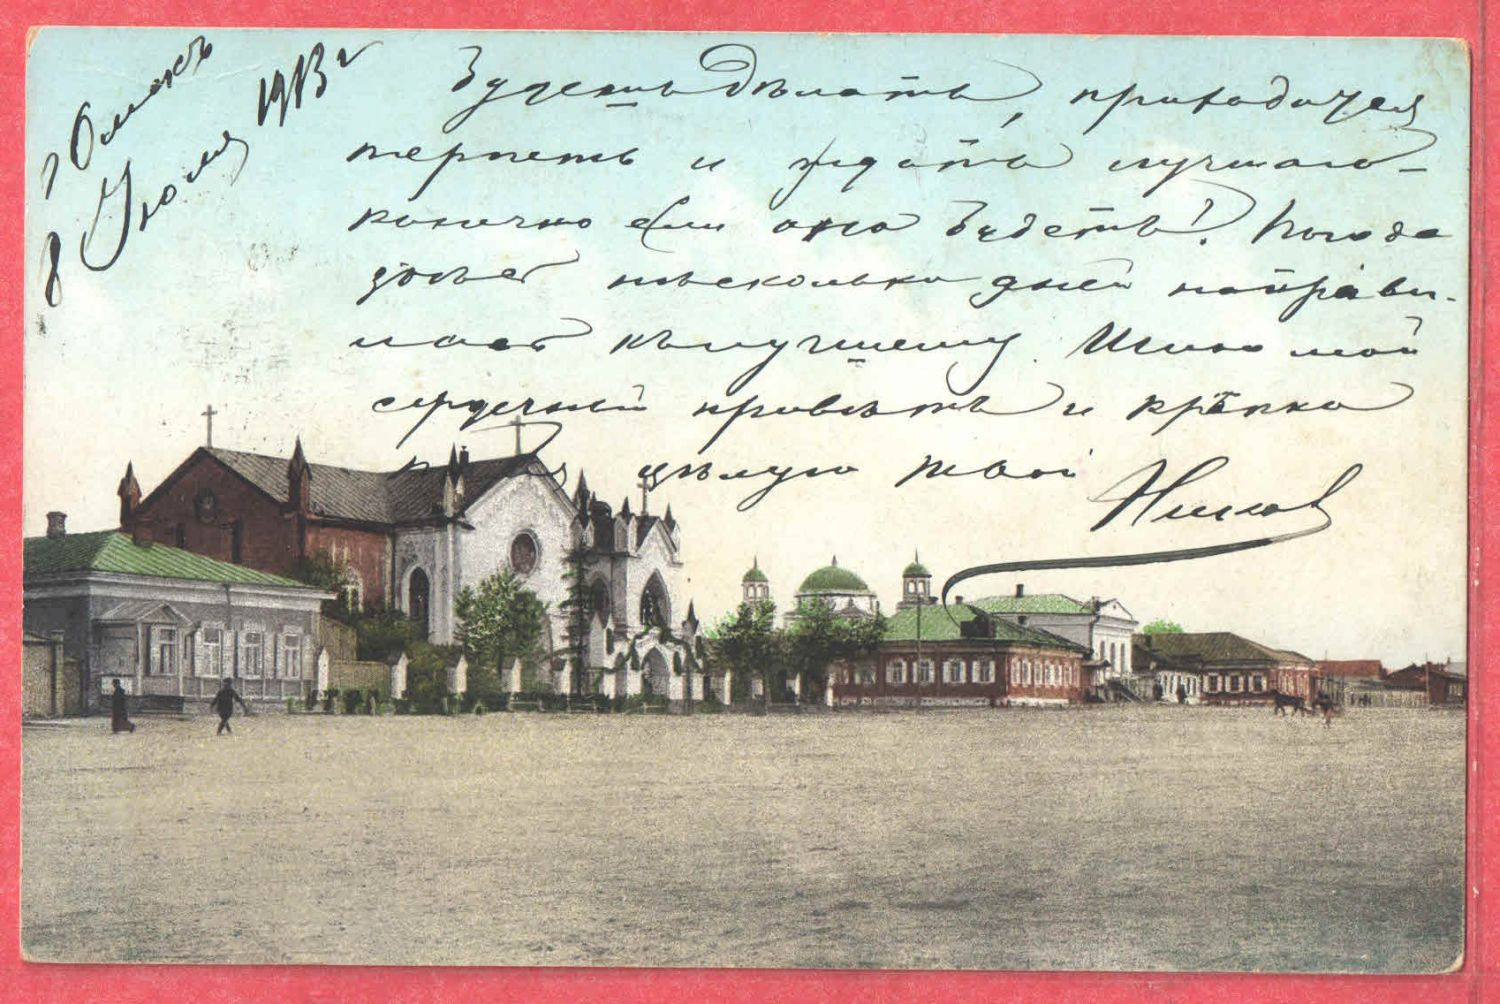 г Омскъ
8 Июля 1913 г
будешь дѣлать, приходится
терпеть и ждать лучшаго-
конечно если оно будетъ! Погода
здѣсь нѣсколько дней направи-
лась къ лучшему. Шлю мой
сердечный привѣтъ и крѣпко
цѣлую твой